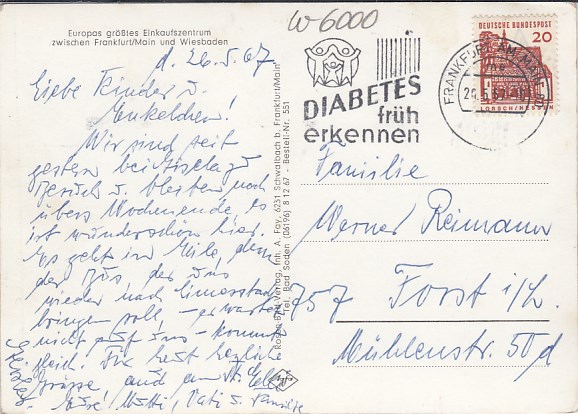 W 6000
Europas größtes Einkaufszentrum
zwischen Frankfurt/Main und Wiesbaden
d. 26.5.67
Liebe Kinder u.
Enkelchen!
Wir sind seit
gestern bei Gisela zu
Besuch u. bleiben noch
übers Wochenende, es
ist wunderschön hier.
Es geht in Eile, denn
der Bus der uns
wieder nach
bringen soll - er wartet
nicht auf uns - kommt
gleich. Die herzliche
Grüsse auch an
Mutti, Vati u. Familie
Rosen-Bild-Verlag, Inh. A. Foy, 6231 Schwalbach b. Frankfurt/Main
Tel. Bad Soden (06196) 8 12 67 - Bestell-Nr. 551
DIABETES
früh
erkennen
FRANKFURT AM MAIN
DEUTSCHE BUNDESPOST
20
LORSCH/HESSEN
Familie
Werner Reimann
757 Forst i/L.
Mühlenstr. 50d